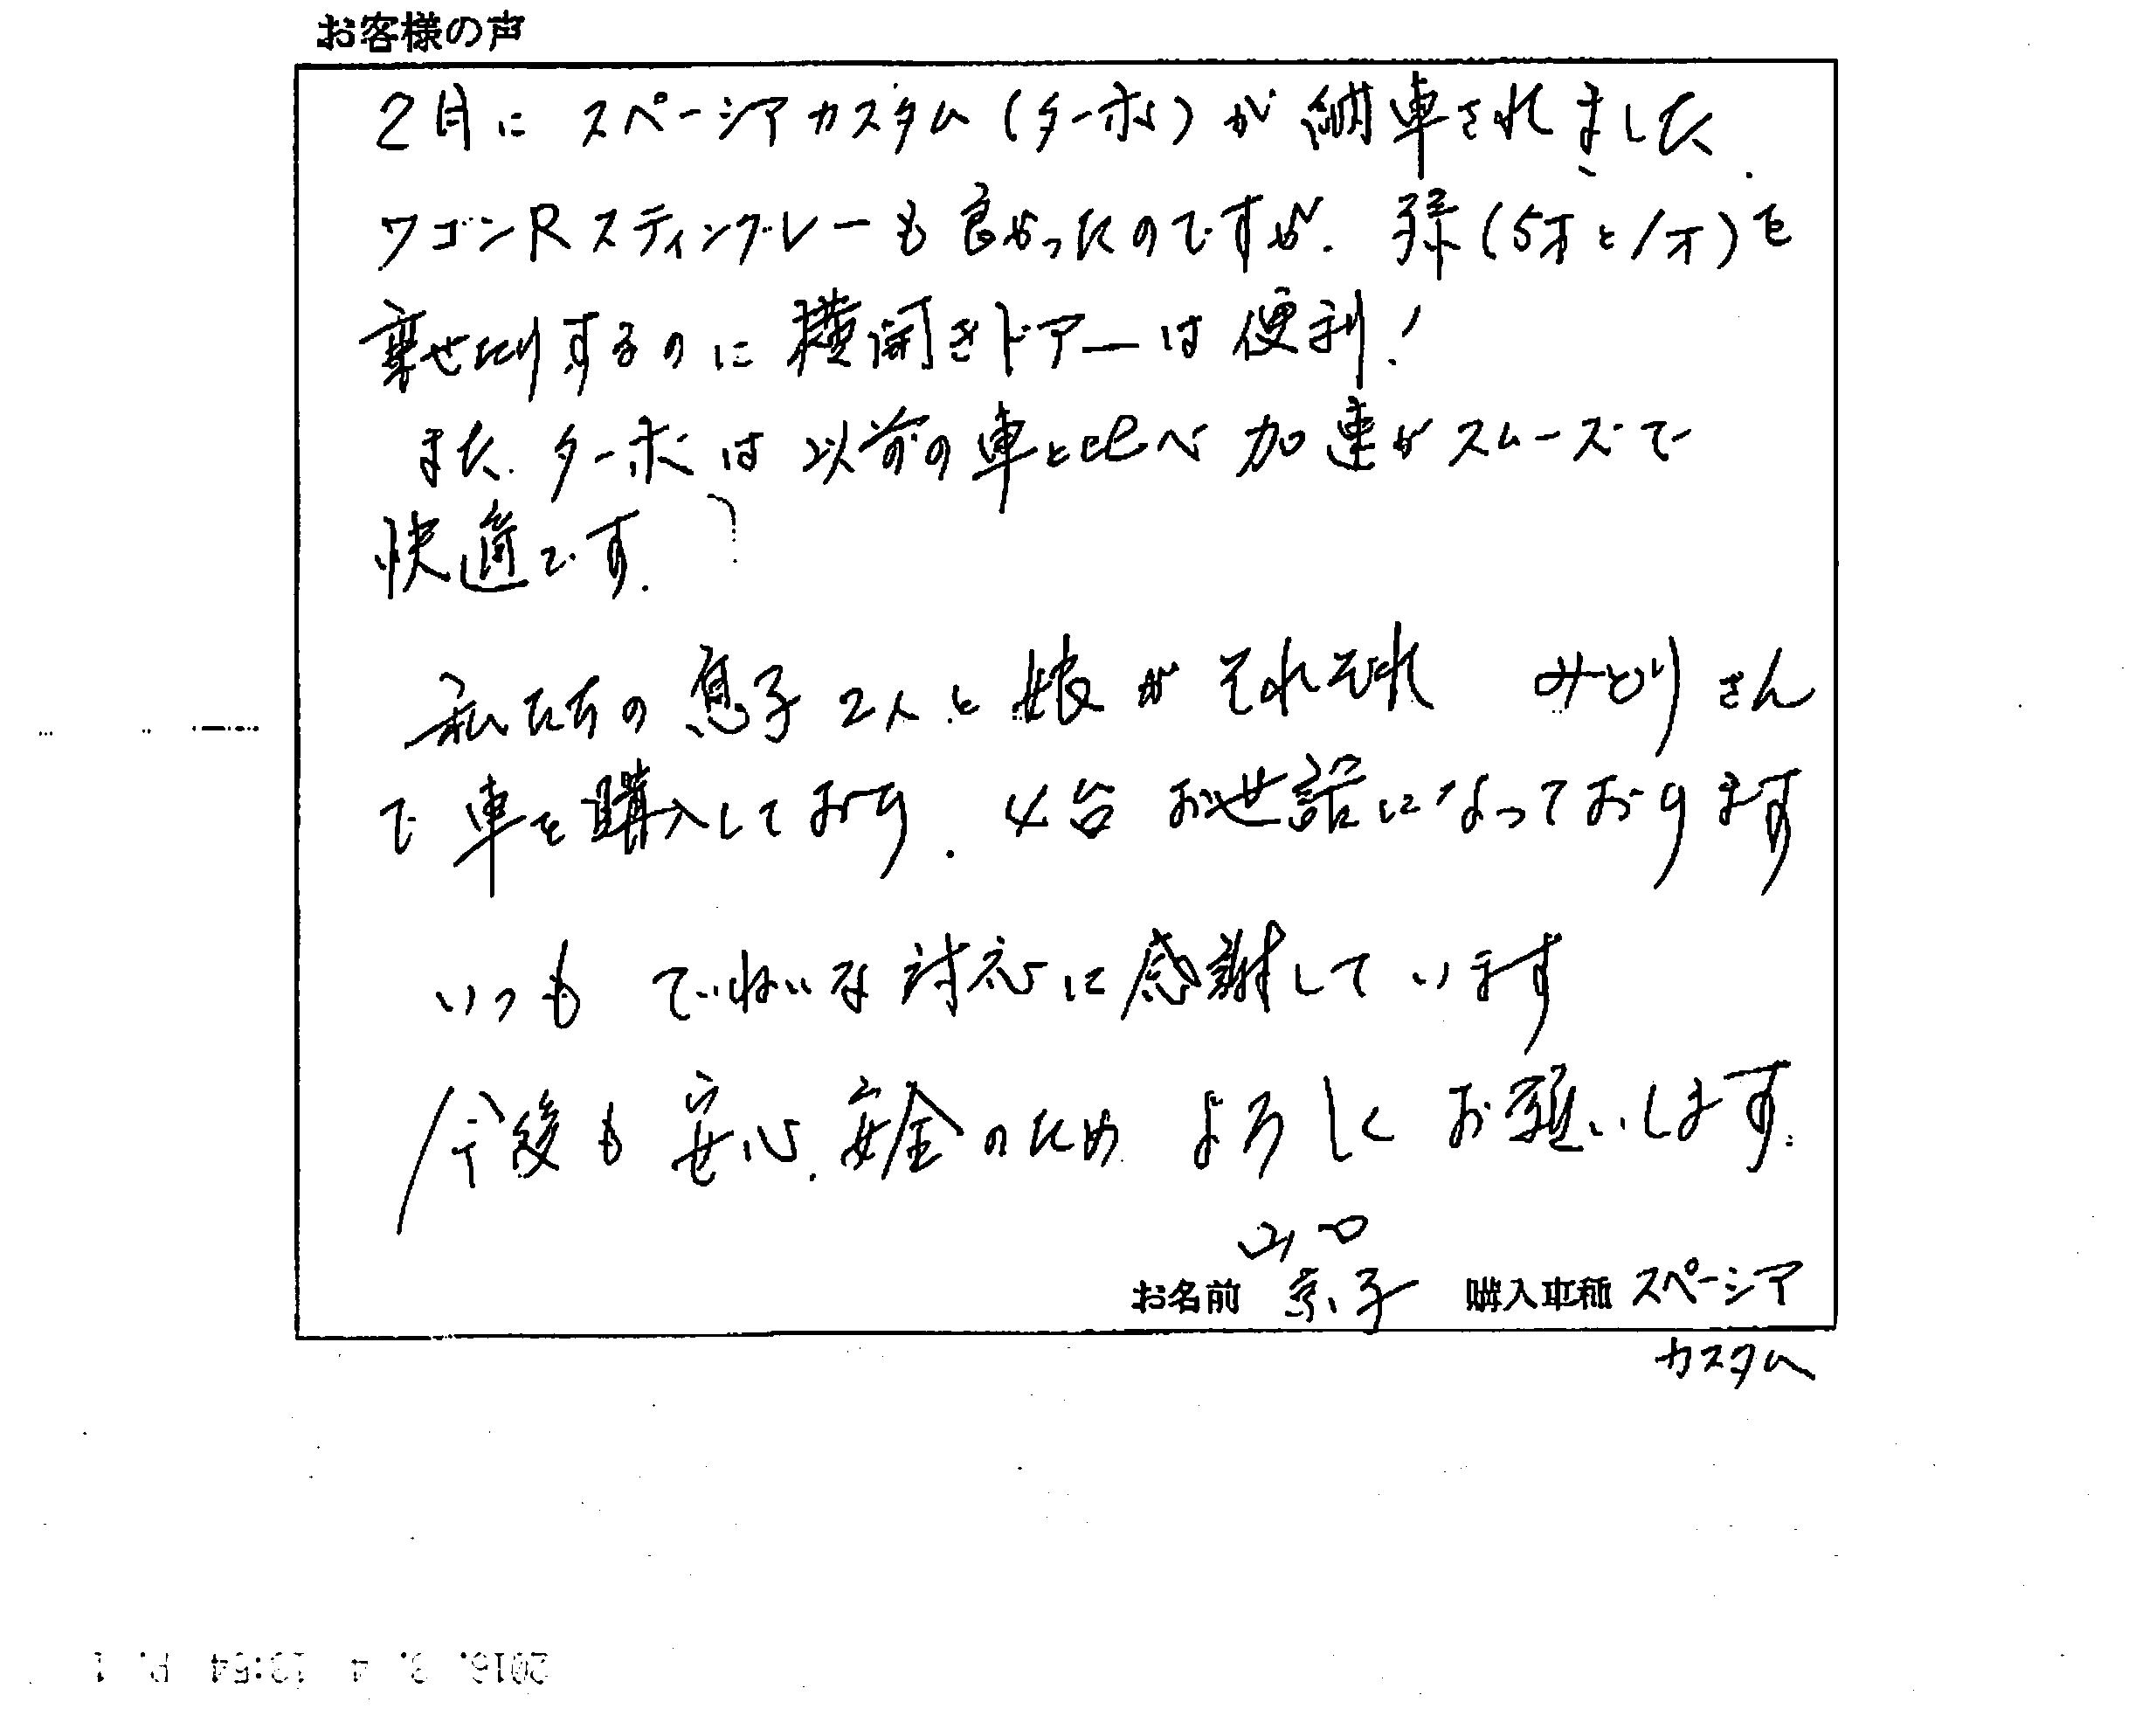 お客様の声
2月に スペーシアカスタム(ターボ)が 納車されました.
ワゴンRスティングレーも良かったのですが. 孫(5才と1才)を
乗せたりするのに 横開きドアーは便利!
また. ターボは 以前の車と比べ 加速がスムーズで
快適です.
私たちの息子2人と娘がそれぞれ みどりさん
で車を購入しており. 4台 お世話になっております
いつも ていねいな対応に感謝しています
今後も安心.安全のため よろしくお願いします.
山口
お名前 京子 購入車種 スペーシア
カスタム